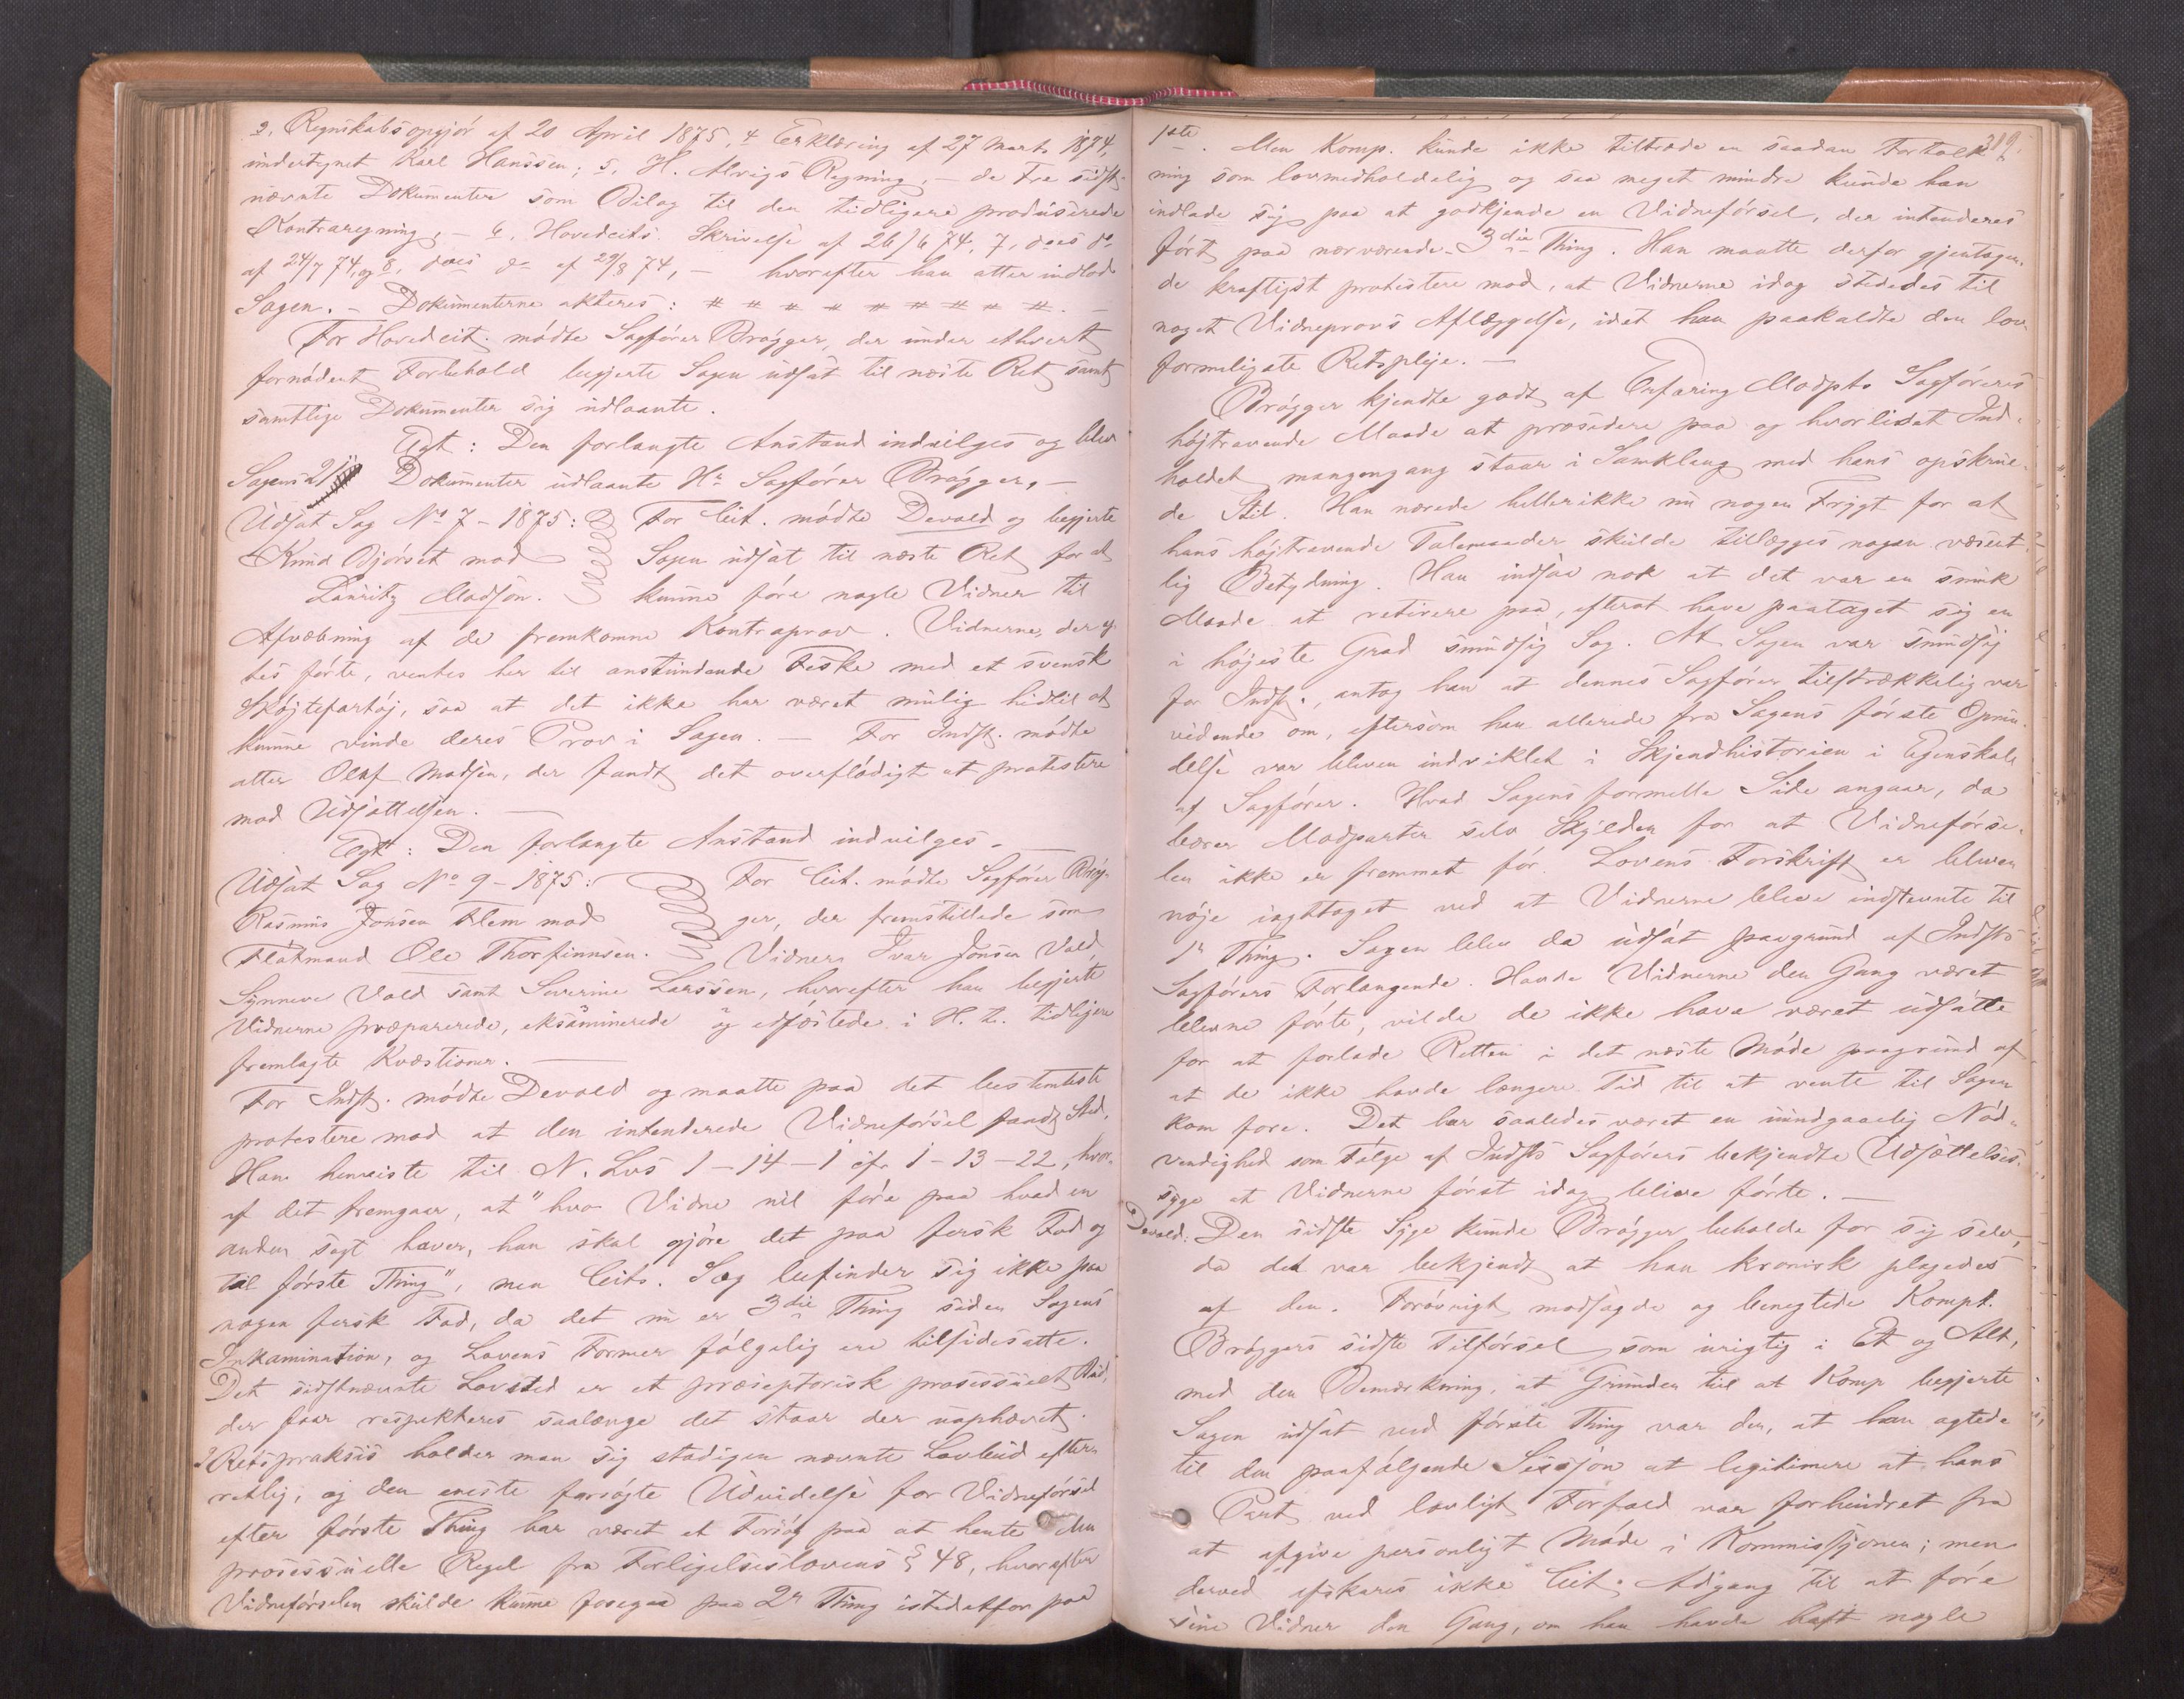 3, Regnskabsopgjør af 20 April 1875, 4 Erklæring af 27 Marts 1874,
undertegnet Karl Hanssen; 5, H. Alvigs Regning, – de tre sidst-
nævnte Dokumenter som Bilag til den tidligere produserede
Kontraregning, – 6, Hovedcits. Skrivelse af 26/6 74, 7, do
af 24/7 74, og 8, do af 29/8 74, – hvorefter han atter indlod
Sagen. – Dokumenterne akteres: # # # # # # # # #. –
For Hovedcit. mødte Sagfører Brøgger, der under ethvert
fornødent Forbehold begjerte Sagen udsat til næste Ret samt
samtlige Dokumenter sig udlaante.
Egt: Den forlangte Anstand indvilges og blev
Sagens Dokumenter udlaante Hr Sagfører Brøgger, –
Udsat Sag No 7 – 1875: For Cit. mødte Devold og begjerte
Knud Bjørset mod Sagen udsat til næste Ret for at
Lauritz Madsøn. kunne føre nogle Vidner til
Afvæbning af de fremkomne Kontraprov. Vidnerne, der
tes førte, ventes her til anstundende Fiske med et svensk
Skøjtefartøj, saa at det ikke har været mulig hidtil at
kunne vinde deres Prov i Sagen. – For Indst. mødte
atter Oluf Madsen, der fandt det overflødigt at protestere
mod Udsættelsen. –
Egt: Den forlangte Anstand indvilges –
Udsat Sag No 9 – 1875: For Cit. mødte Sagfører Brøg-
Rasmus Jonsen Flem mod ger, der fremstillede som
Flåtmand Ole Thorfinnsen. Vidner Ivar Jonsen Vold,
Synneve Vold samt Severine Larssen, hvorefter han begjerte
Vidnerne præparerede, eksaminerede og edfæstede i H. t. tidligere
fremlagte Kvæstioner. –
For Indst. mødte Devold og maatte paa det bestemteste
protestere mod at den intenderede Vidneførsel fandt Sted.
Han henviste til N. Lovs 1–14–1 cfr. 1–13–22, hvor-
af det fremgaar, at "hvo Vidne vil føre paa hvad en
anden sagt haver, han skal gjøre det paa fersk Fod og
til første Thing", men Cits. Sag befinder sig ikke paa
nogen fersk Fod, da det nu er 3die Thing siden Sagens
Inkamination, og Lovens Former følgelig ere tilsidesatte.
Det sidstnævnte Lovsted er et præseptorisk prosessuelt Bud,
der faar respekteres saalænge det staar der uophævet.
I Retspraksis holder man sig stadigen nævnte Lovbud efter-
rettlig, og den eneste forsøgte Udvidelse for Vidneførsel
efter første Thing har været et Forsøg paa at hente den
prosessuelle Regel fra Forligelseslovens § 48, hvorefter
Vidneførselen skulde kunne foregaa paa 2et Thing istedetfor paa
319.
1ste. Men Komp. kunde ikke tiltræde en saadan Fortolk-
ning som lovmedholdelig og saa meget mindre kunde han
indlade sig paa at godkjende en Vidneførsel, der intenderes
ført paa nærværende 3die Thing. Han maatte derfor gjentagen-
de kraftigst protestere mod, at Vidnerne idag stededes til
noget Vidneprovs Aflæggelse, idet han paakaldte den lov
formeligste Retspleje. –
Brøgger kjendte godt af Erfaring Modpts Sagføreres
højtravende Maade at prosedere paa og hvorlidet Ind-
holdet mangengang staar i Samklang med hans opskrue-
de Stil. Han nærede hellerikke nu nogen Frygt for at
hans højtravende Talemaader skulde tillægges nogen væsent-
lig Betydning. Han indsaa nok at det var en smuk
Maade at retirere paa, efterat have paataget sig en
i højeste Grad smudsig Sag. At Sagen var smudsig
for Indst., antog han at dennes Sagfører tilstrækkelig var
vidende om, eftersom han allerede fra Sagens første Oprin-
delse var bleven indviklet i Skjendhistorien i Egenskab
af Sagfører. Hvad Sagens formelle Side angaar, da
bærer Modparten selv Skylden for at Vidneførse-
len ikke er fremmet før. Lovens Forskrift er bleven
nøje iagttaget ved at Vidnerne bleve indstevnte til
1st Thing. Sagen blev da udsat paagrund af Indsts
Sagførers Forlangende. Havde Vidnerne den Gang været
blevne førte, vilde de ikke have været udsatte
for at forlade Retten i det næste Møde paagrund af
at de ikke havde længere Tid til at vente til Sagen
kom fore. Det har saaledes været en uundgaaelig Nød-
vendighed som Følge af Indsts Sagførers bekjendte Udsættelses-
syge at Vidnerne først idag bleve førte. –
Devold: Den sidste Syge kunde Brøgger beholde for sig selv,
da det var bekjendt at han kronisk plagedes
af den. Forøvrigt modsagde og benegtede Kompt.
Brøggers sidste Tilførsel som urigtig i Et og Alt,
med den Bemærkning, at Grunden til at Komp begjerte
Sagen udsat ved første Thing var den, at han agtede
til den paafølgende Session at legitimere at hans
Part ved lovligt Forfald var forhindret fra
at afgive personligt Møde i Kommissjonen; men
derved afskares ikke Cit. Adgang til at føre
sine Vidner den Gang, om han havde haft nogle